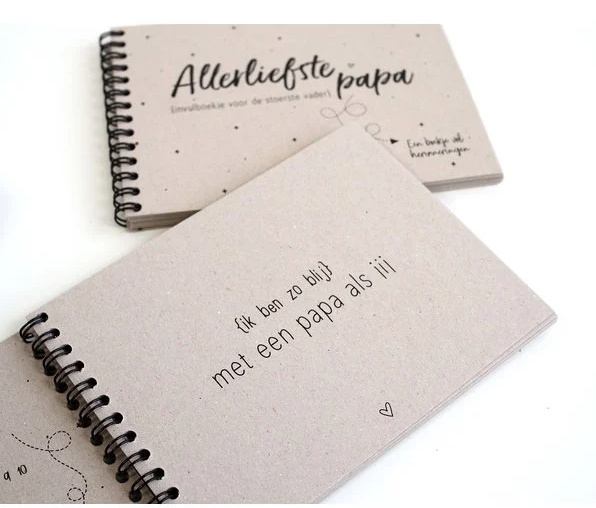 Allerliefste papa
{invulboekje voor de stoerste vader}
Een boekje vol
herinneringen
{ik ben zo blij}
met een papa als jij
9 10